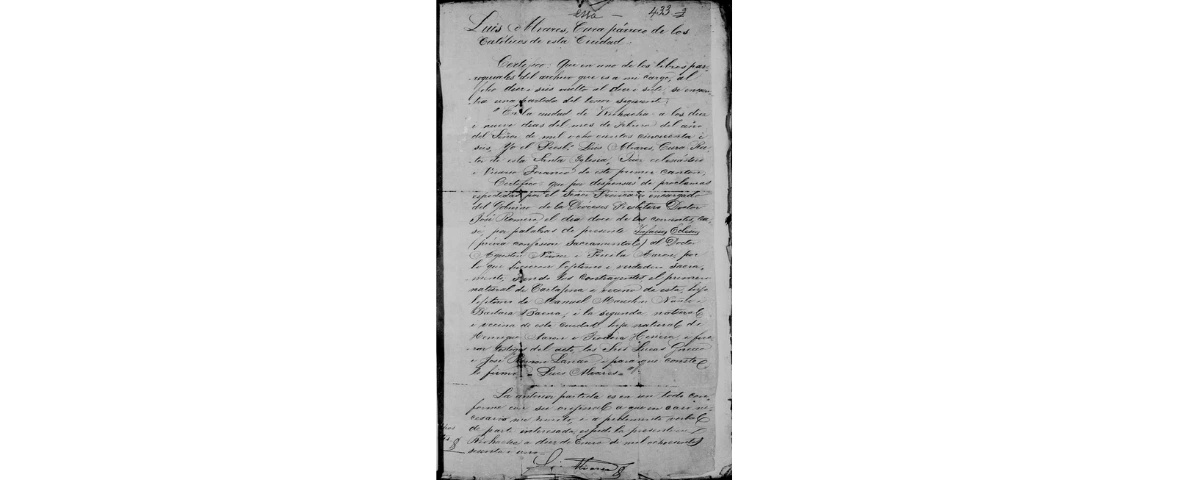 433
Luis Alvares, Cura párroco de los
Católicos de esta Ciudad.
Certifico: Que en uno de los libros par-
roquiales del archivo que es a mi cargo, al
folio diez i seis vuelto al diez i siete, se encuen-
tra una partida del tenor siguiente:
"En la ciudad de Riohacha a los diez
i nueve dias del mes de febrero del año
del Señor de mil ocho cientos cincuenta i
seis, Yo el Presb. Luis Alvares, Cura Rec-
tor de esta Santa Iglesia, Juez eclesiástico
i Vicario de este primer canton,
Certifico: que por dispensa de proclamas
por el Señor encargado
del Gobierno de la Diócesis Doctor
José Romero el dia doce de los corrientes, ca-
sé, por palabras de presente
(previa confesion sacramental) al Doctor
Agustin Nuñez i por
lo que hicieron lejitimo i verdadero sacra-
mento. Siendo los contrayentes, el primero
natural de Cartajena i vecino de esta, hijo
lejitimo de Manuel
Barbara Baena, i la segunda, natural
i vecina de esta ciudad, hija natural de
Henrique i fue-
ron testigos del acto los
i José i para que conste
lo firmo = Luis Alvares"
La anterior partida es en un todo con-
forme con su orijinal a que en caso ne-
cesario me remito, i a pedimento verbal
de parte interesada, espido la presente en
Riohacha a diez de Enero de mil ochocientos
sesenta i uno.
L. Alvares